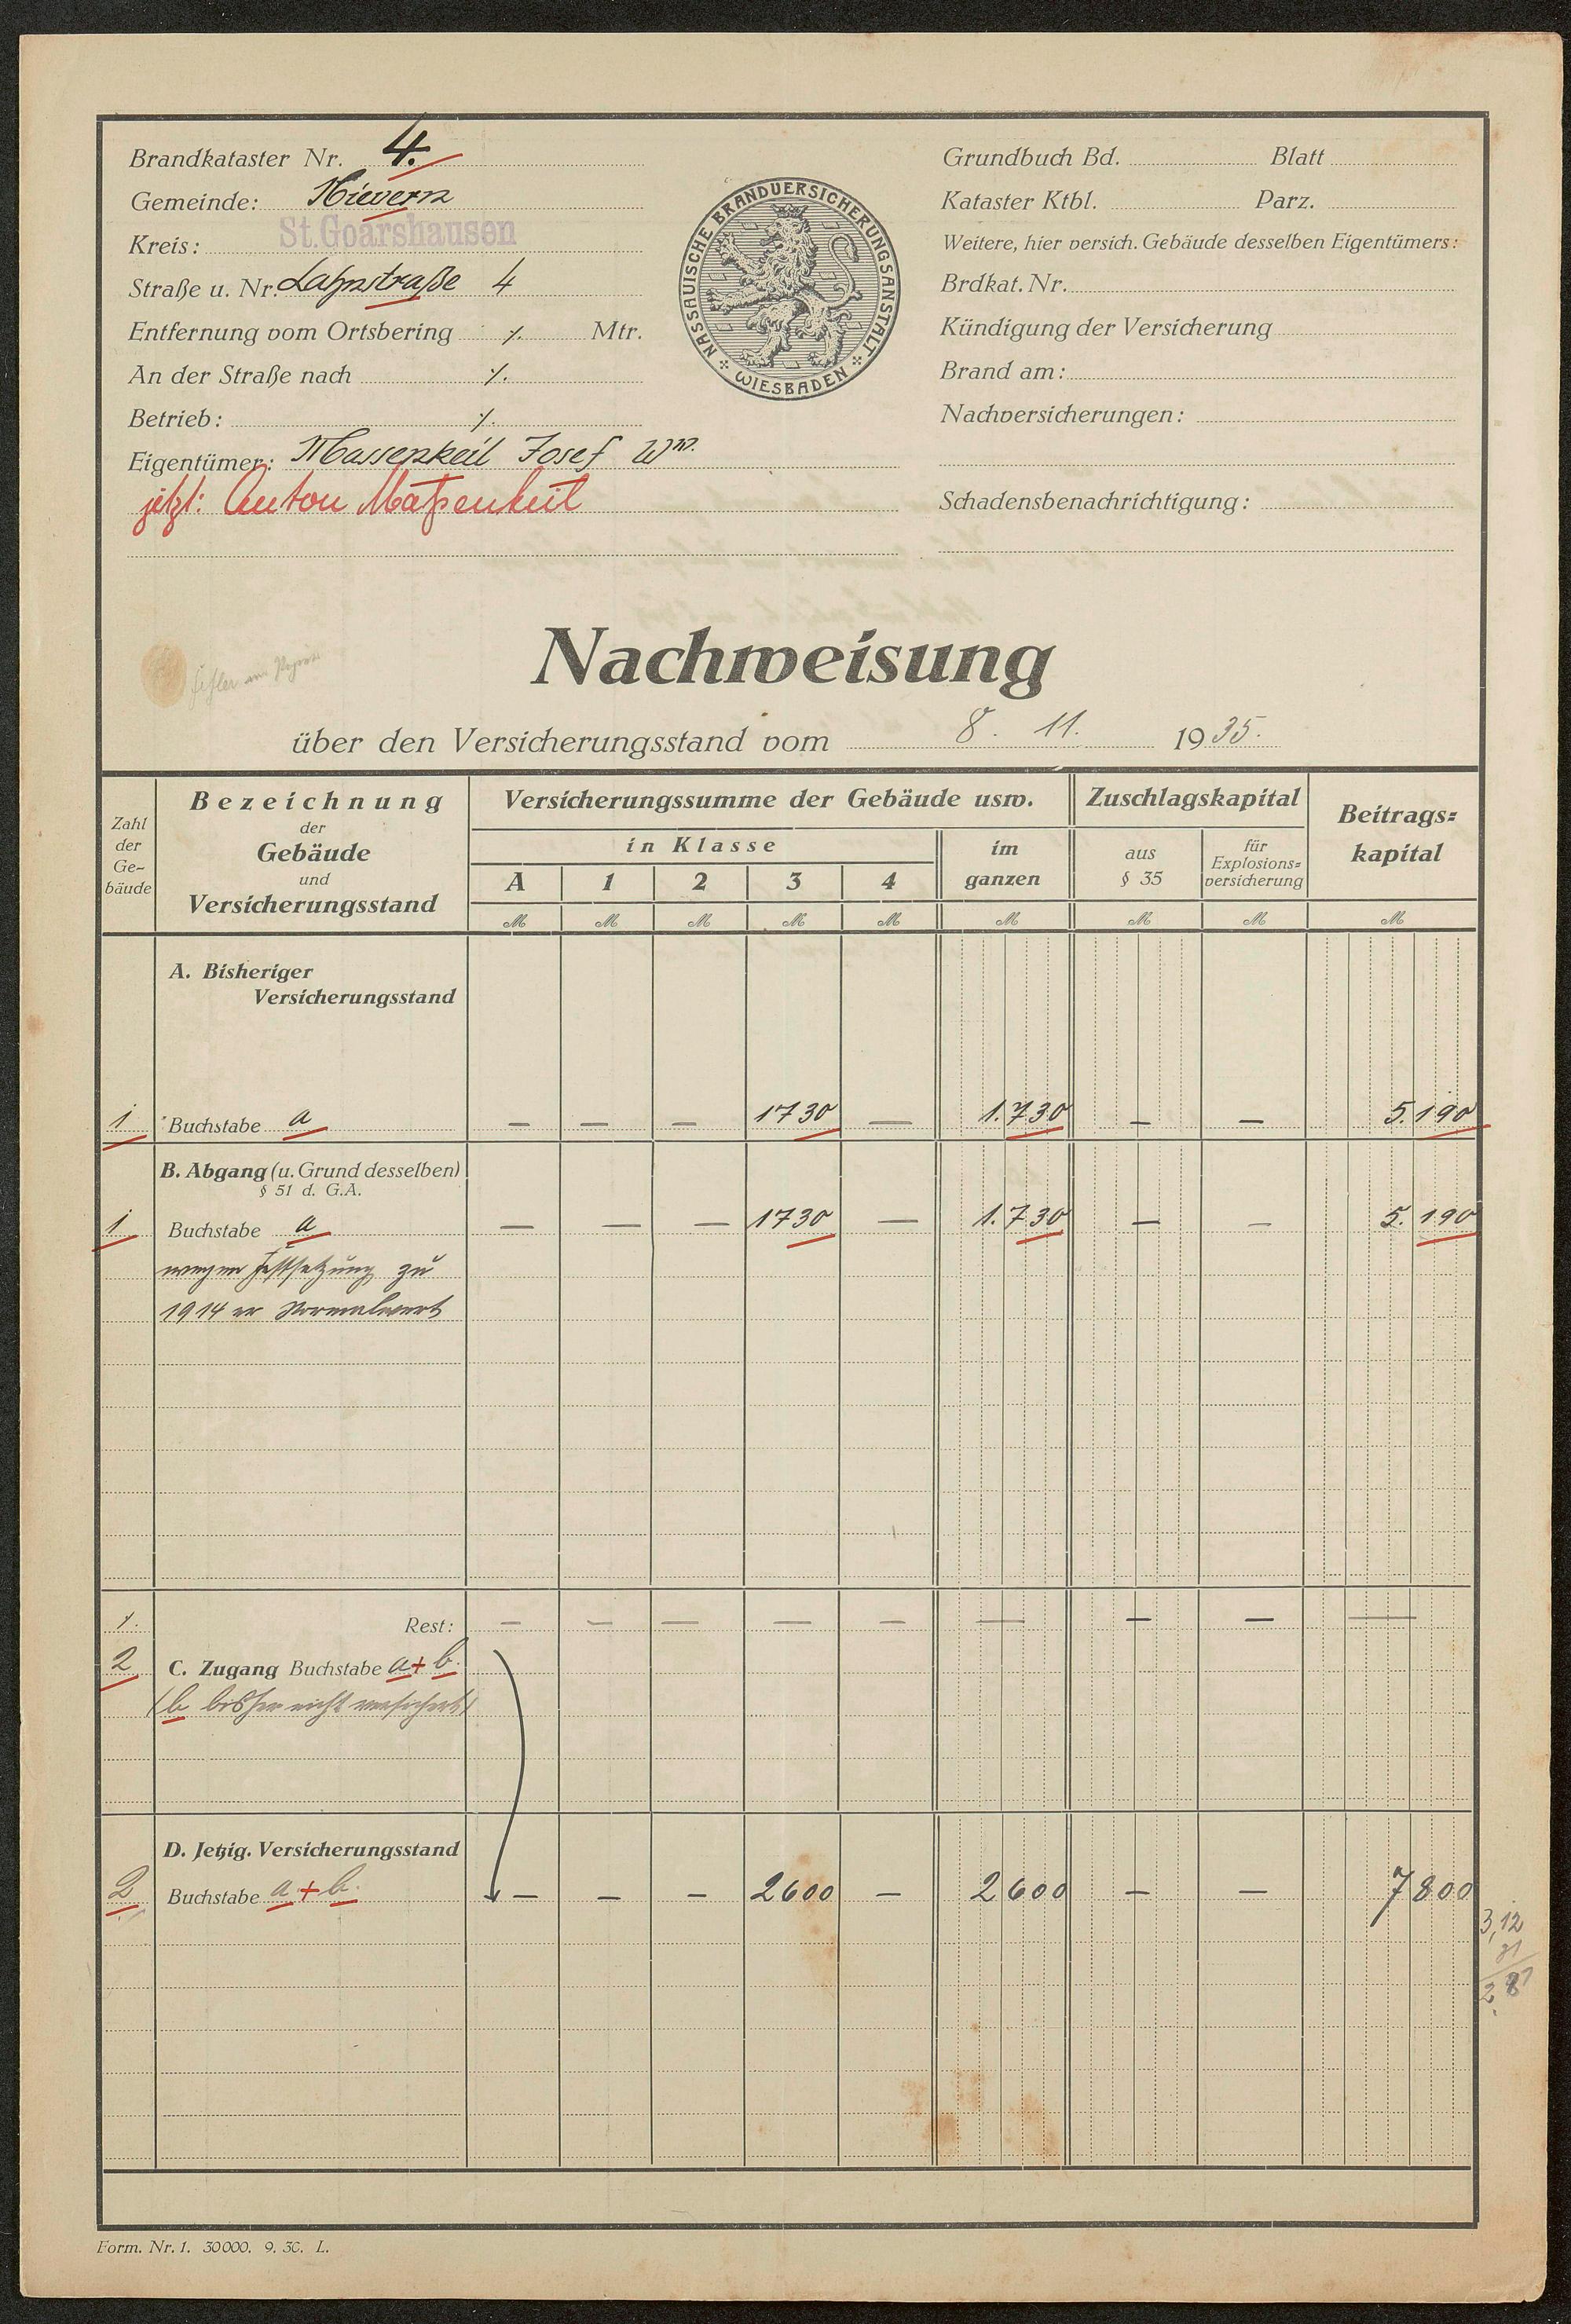 Brandkataster Nr. 4.
Gemeinde: Nievern
Kreis: St.Goarshausen
Straße u. Nr. Lahnstraße 4
Entfernung vom Ortsbering ./. Mtr.
An der Straße nach ./.
Betrieb: ./.
Eigentümer: Massenkeil Josef Ww.
jetzt: Anton Maßenkeil
NASSAUISCHE BRANDVERSICHERUNGSANSTALT
WIESBADEN
Grundbuch Bd. Blatt
Kataster Ktbl. Parz.
Weitere, hier versich. Gebäude desselben Eigentümers:
Brdkat. Nr.
Kündigung der Versicherung
Brand am:
Nachversicherungen:
Schadensbenachrichtigung:
Nachweisung
über den Versicherungsstand vom 8. 11. 1935.
Zahl der Ge- bäude
Bezeichnung
der
Gebäude
und
Versicherungsstand
Versicherungssumme der Gebäude usw.
in Klasse
A 1 2 3 4
im ganzen
Zuschlagskapital
aus § 35
für Explosions= versicherung
Beitrags= kapital
M M M M M M M M M
A. Bisheriger
Versicherungsstand
1 Buchstabe a — — — 1730 — 1.730 — — 5.190
B. Abgang (u. Grund desselben)
§ 51 d. G.A.
1 Buchstabe a — — — 1730 — 1.730 — — 5.190
wegen Festsetzung zu
1914 er Normalwert
./. Rest: — — — — — — — — —
2 C. Zugang Buchstabe a + b.
(b bisher nicht versichert)
D. Jetzig. Versicherungsstand
2 Buchstabe a + b. — — — 2600 — 2600 — — 7800
3,12
Form. Nr. 1. 30000. 9. 30. L.